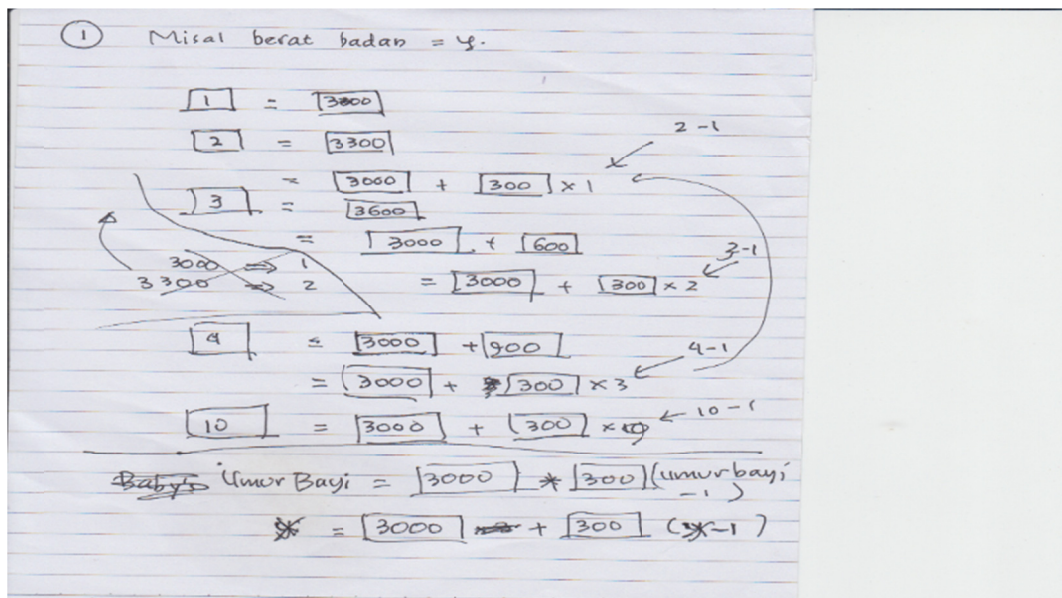 ① Misal berat badan = y.
1 = 3000
2 = 3300
2-1
= 3000 + 300 × 1
3 = 3600
= 3000 + 600
3-1
3000 ⇒ 1
3300 ⇒ 2
= 3000 + 300 × 2
4 = 3000 + 900
4-1
= 3000 + 300 × 3
10 = 3000 + 300 ×
10-1
Baby's Umur Bayi = 3000 * 300 (umur bayi
-1)
= 3000 + 300 (x-1)